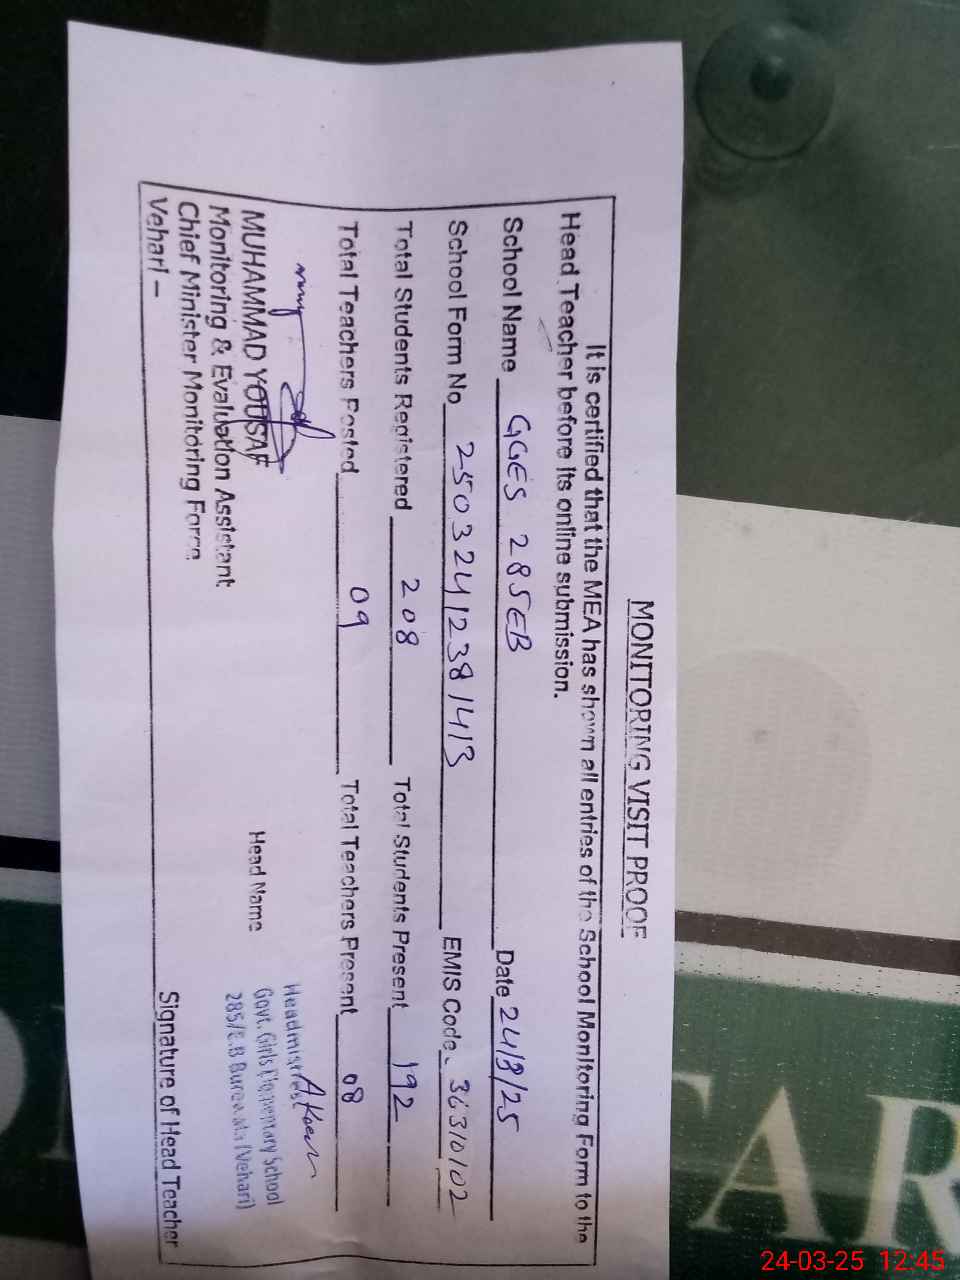 MONITORING VISIT PROOF
It is certified that the MEA has shown all entries of the School Monitoring Form to the
Head Teacher before its online submission.
School Name GGES 285EB Date 24/3/25
School Form No 25032412381413 EMIS Code 36310102
Total Students Registered 208 Total Students Present 192
Total Teachers Posted 09 Total Teachers Present 08
MUHAMMAD YOUSAF
Monitoring & Evaluation Assistant
Chief Minister Monitoring Force
Vehari –
Head Name
Headmistress
Govt. Girls Elementary School
285/E.B (Vehari)
Signature of Head Teacher
AR
24-03-25 12:45